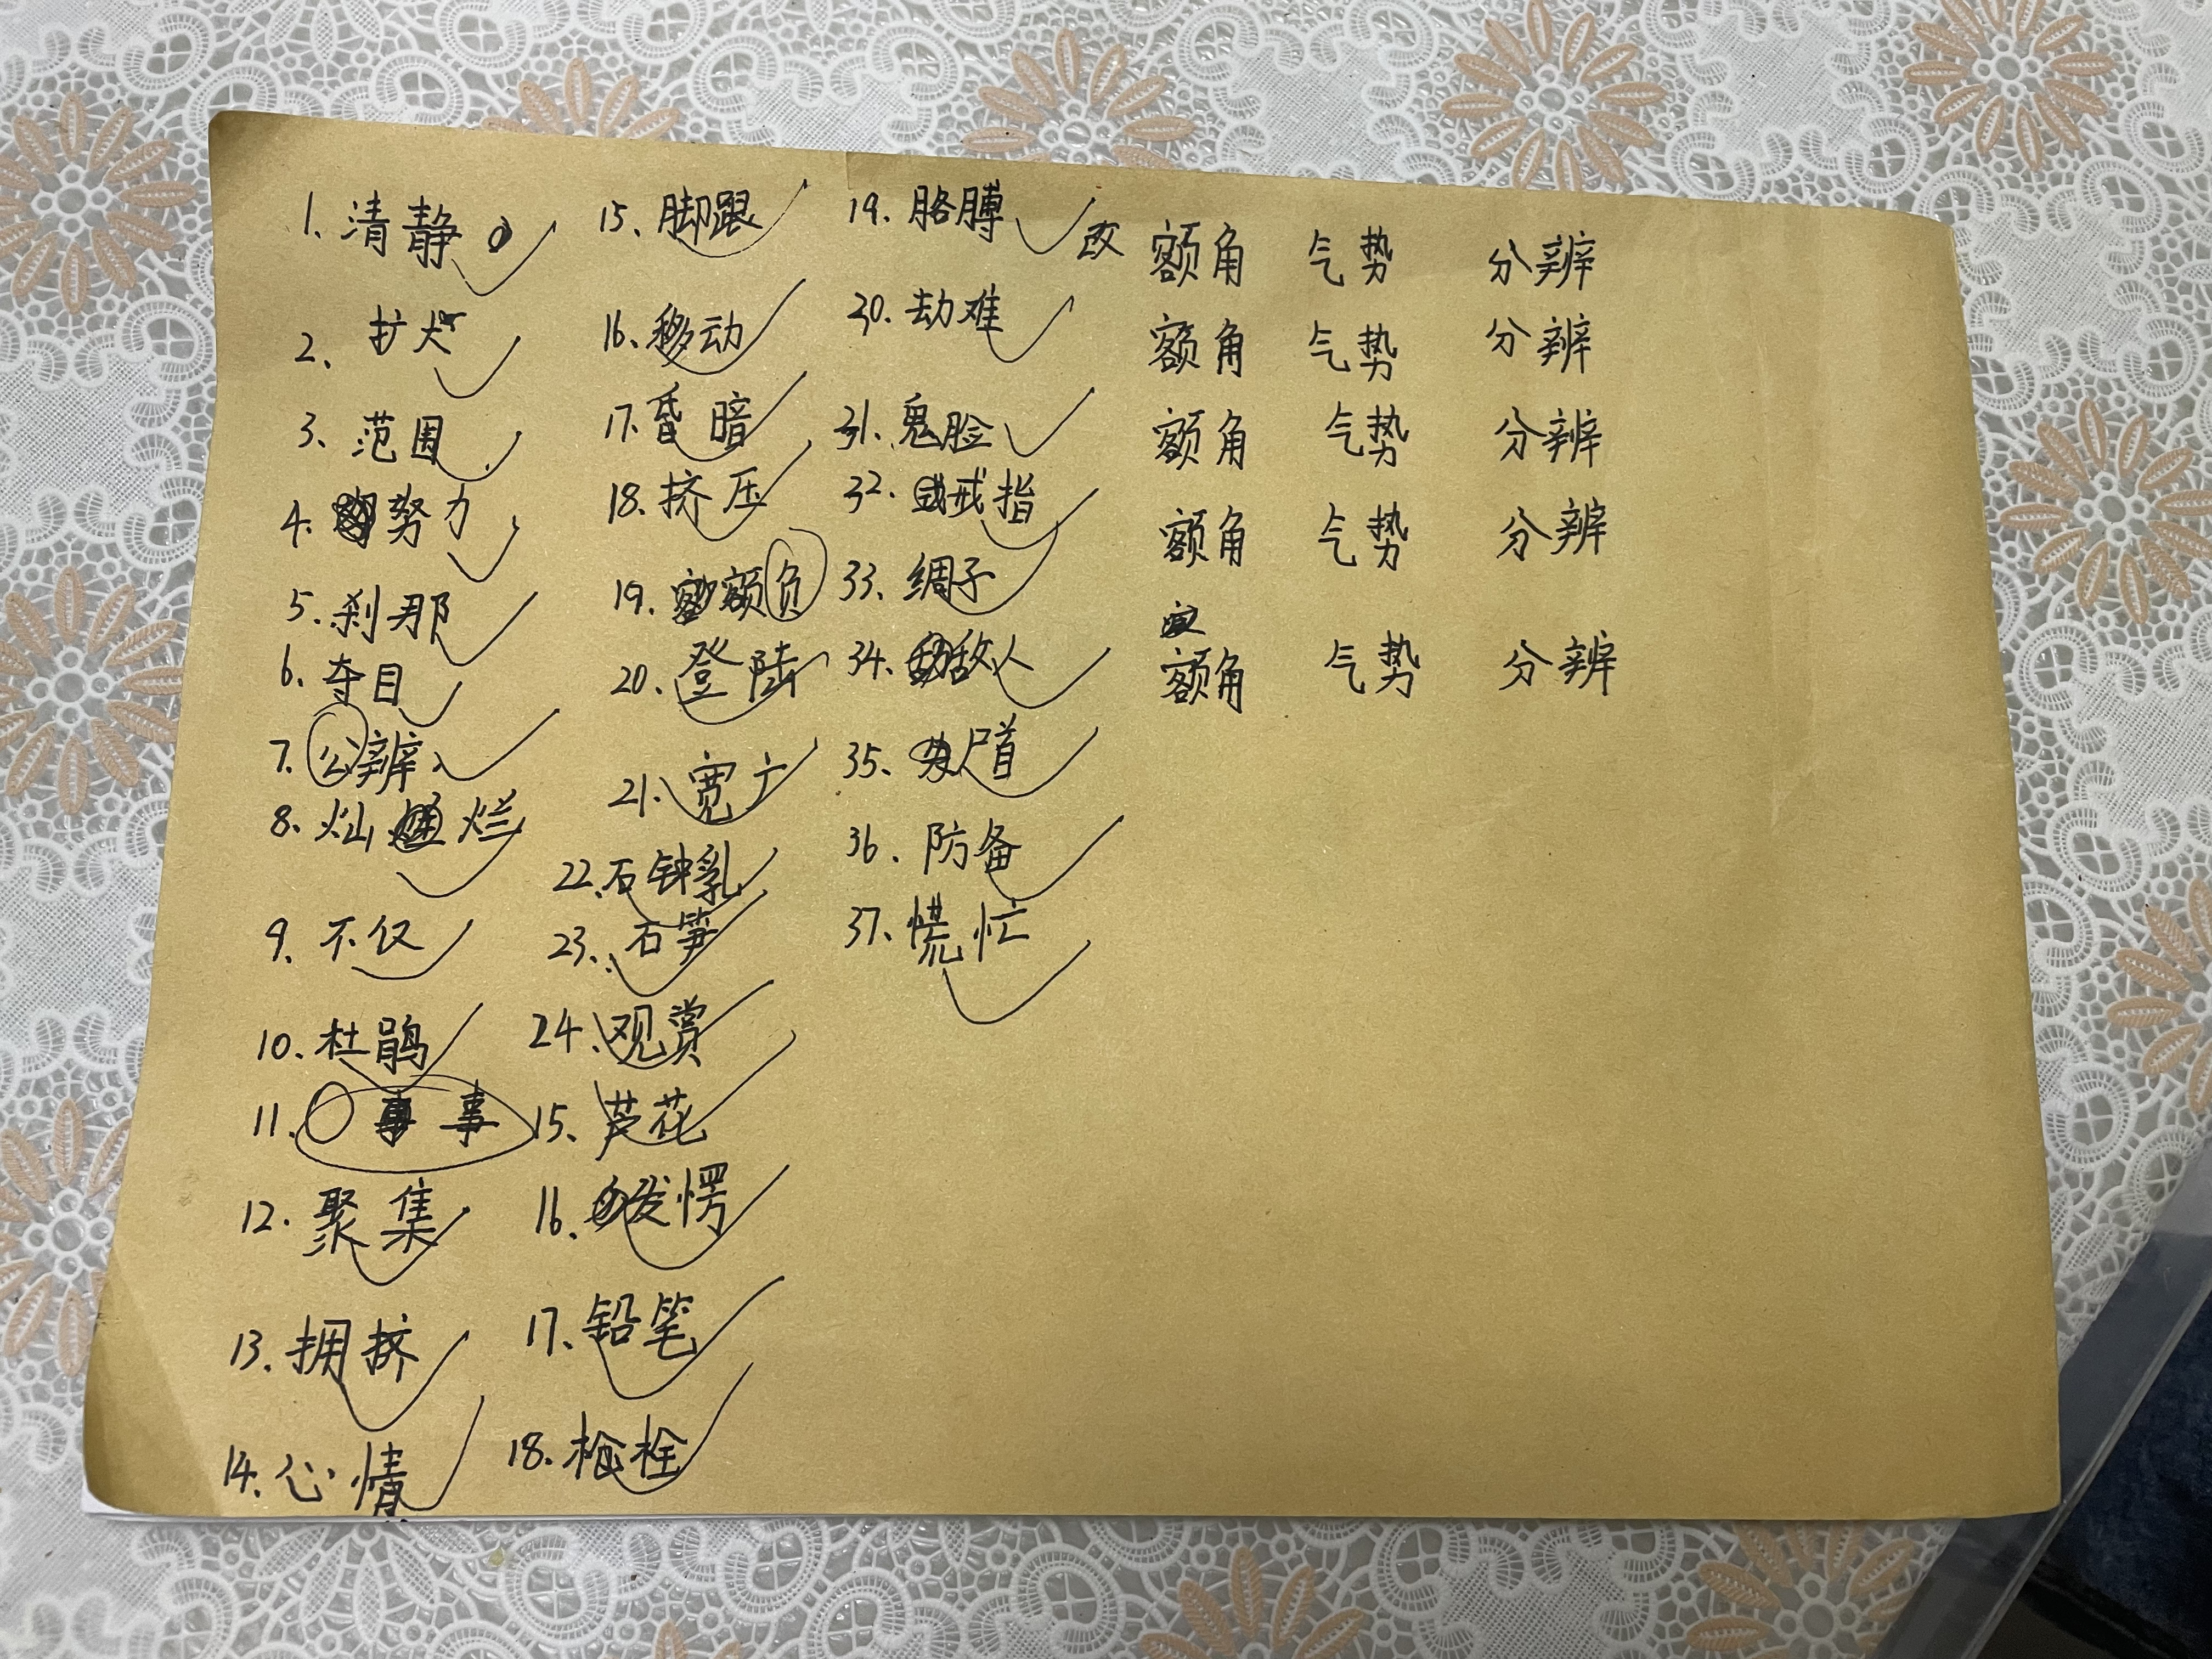 1. 清静
2. 扩大
3. 范围
4. 努力
5. 刹那
6. 夺目
7. 公辨
8. 灿烂
9. 不仅
10. 杜鹃
11. 事
12. 聚集
13. 拥挤
14. 心情
15. 脚跟
16. 移动
17. 昏暗
18. 挤压
19. 额负
20. 登陆
21. 宽广
22. 石钟乳
23. 石笋
24. 观赏
15. 芦花
16. 发愣
17. 铅笔
18. 枪栓
19. 胳膊
30. 劫难
31. 鬼脸
32. 戒指
33. 绸子
34. 敌人
35. 尸首
36. 防备
37. 慌忙
改 额角 气势 分辨
额角 气势 分辨
额角 气势 分辨
额角 气势 分辨
额角 气势 分辨